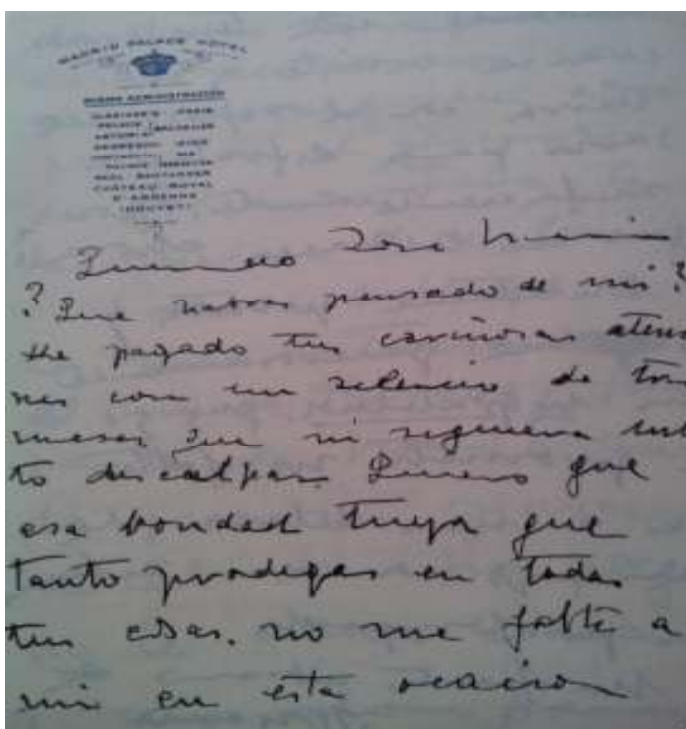 MADRID PALACE HOTEL
MISMA ADMINISTRACIÓN
PARIS
PALACE
Querido Jose Maria
? Que habras pensado de mi ?
He pagado tus cariñosas atencio
nes con un silencio de tres
meses que ni siquiera
to disculpar. Quiero que
esa bondad tuya que
tanto prodigas en todas
tus cosas. no me falte a
mi en esta ocacion